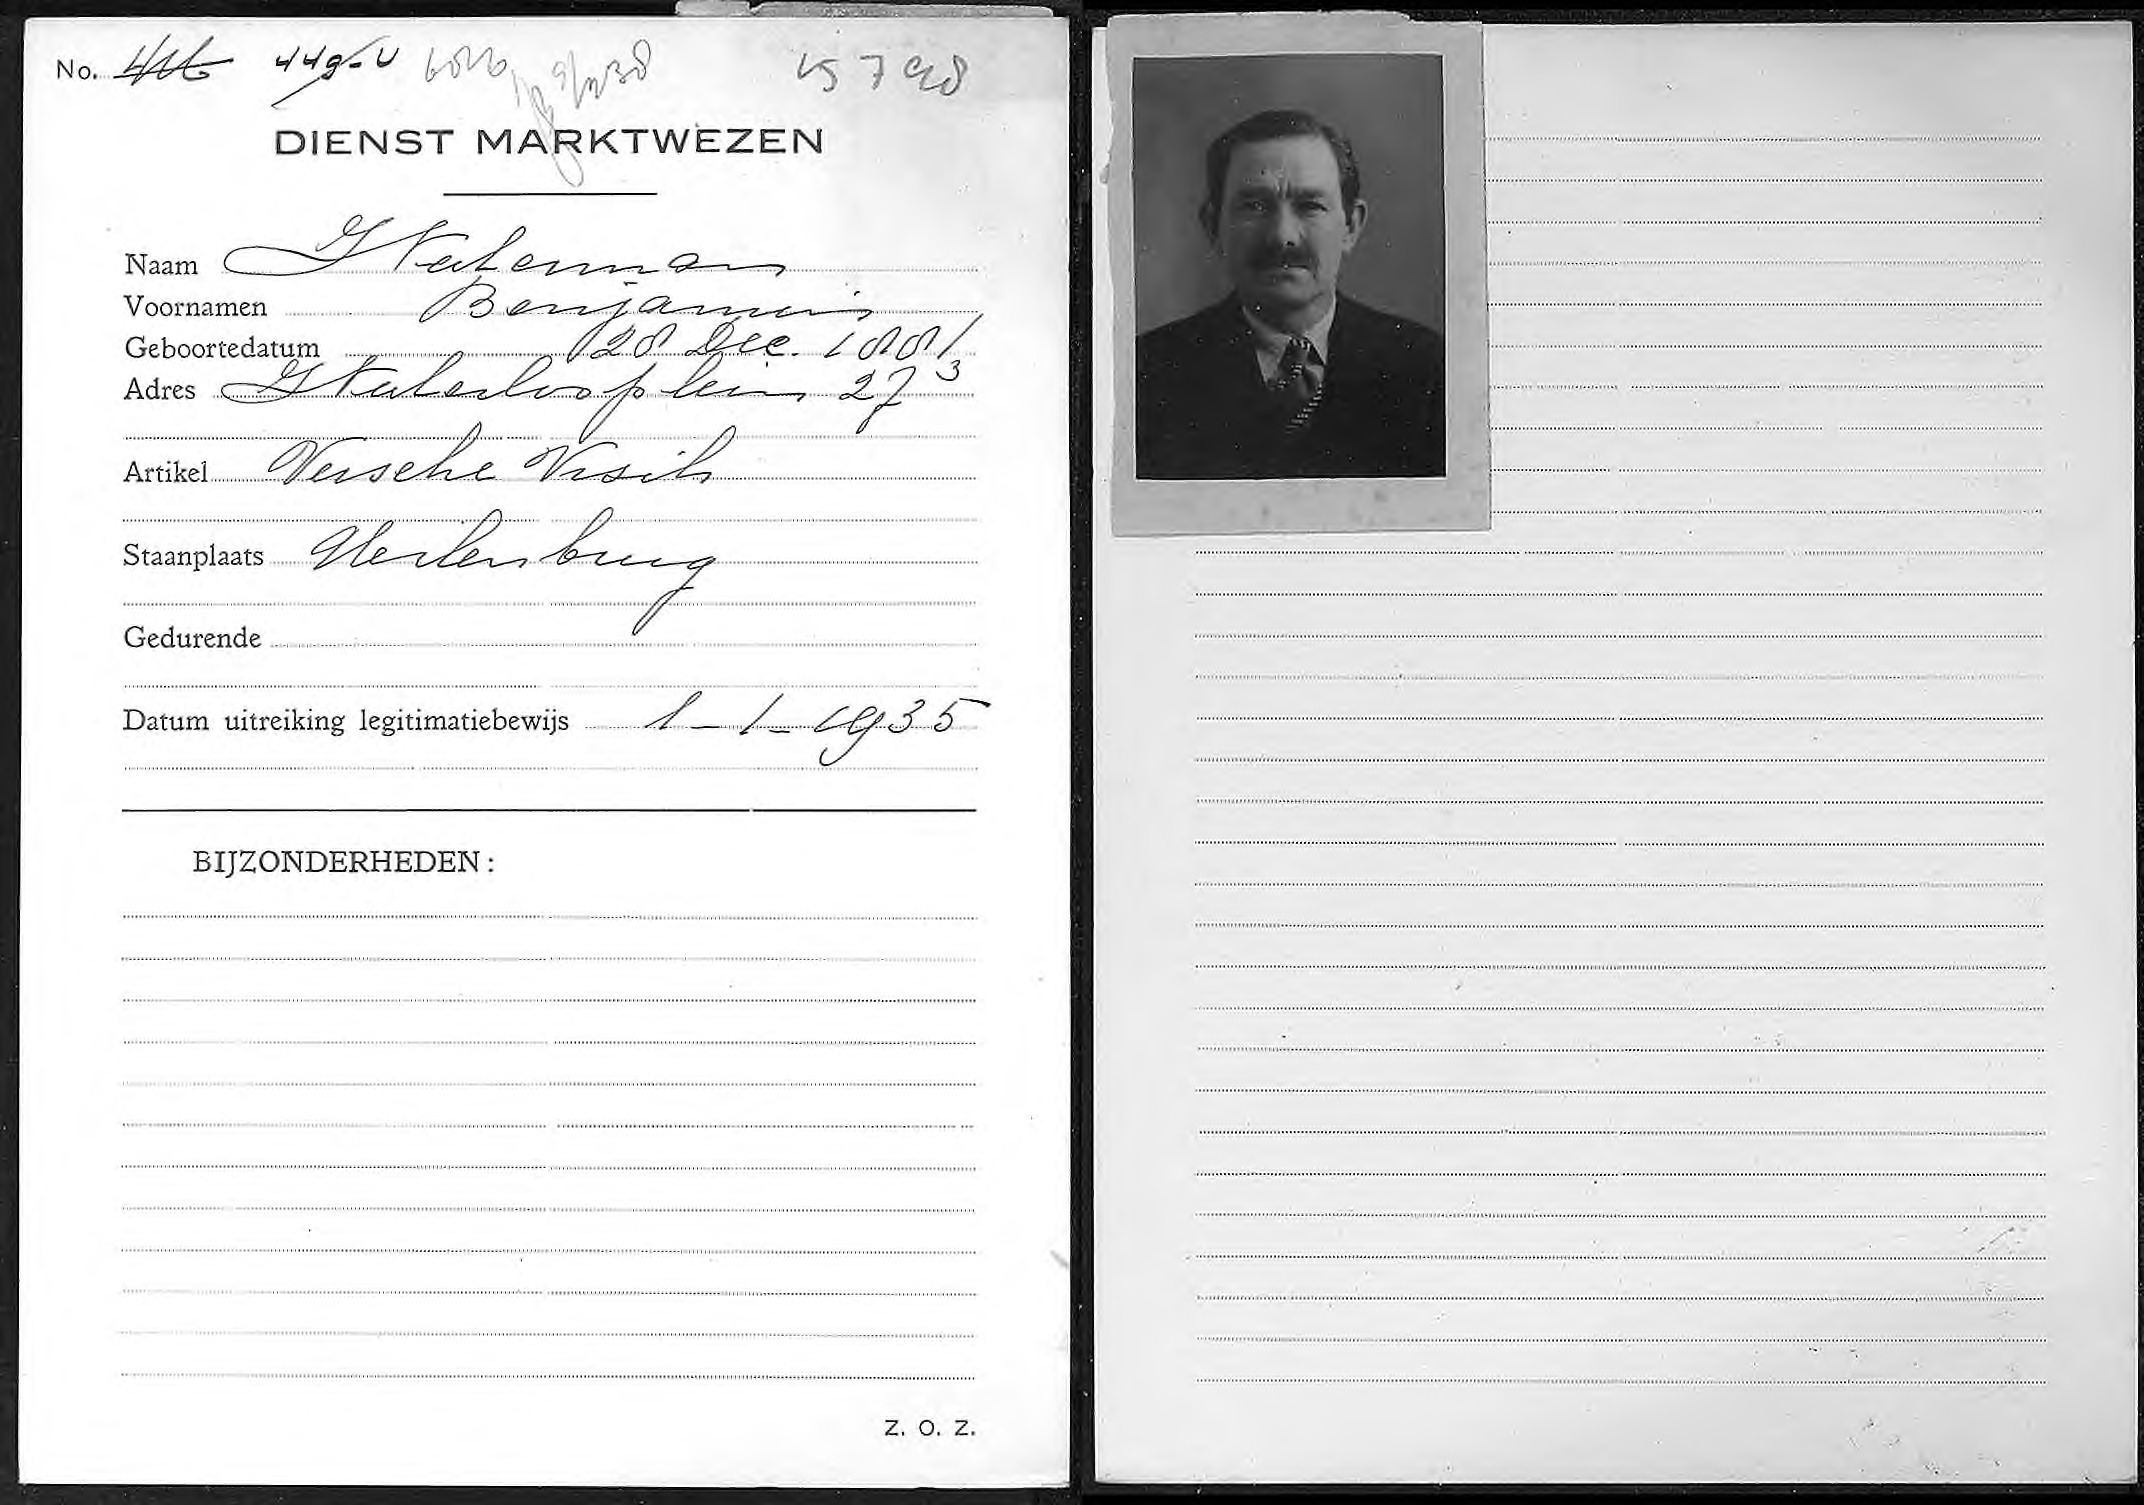 No. 416 449-V 15798
DIENST MARKTWEZEN
Naam Waterman
Voornamen Benjamin
Geboortedatum 28 Dec. 1881
Adres Waterlooplein 27 3
Artikel Versche Visch
Staanplaats Uilenburg
Gedurende
Datum uitreiking legitimatiebewijs 1-1-1935
BIJZONDERHEDEN:
Z. O. Z.